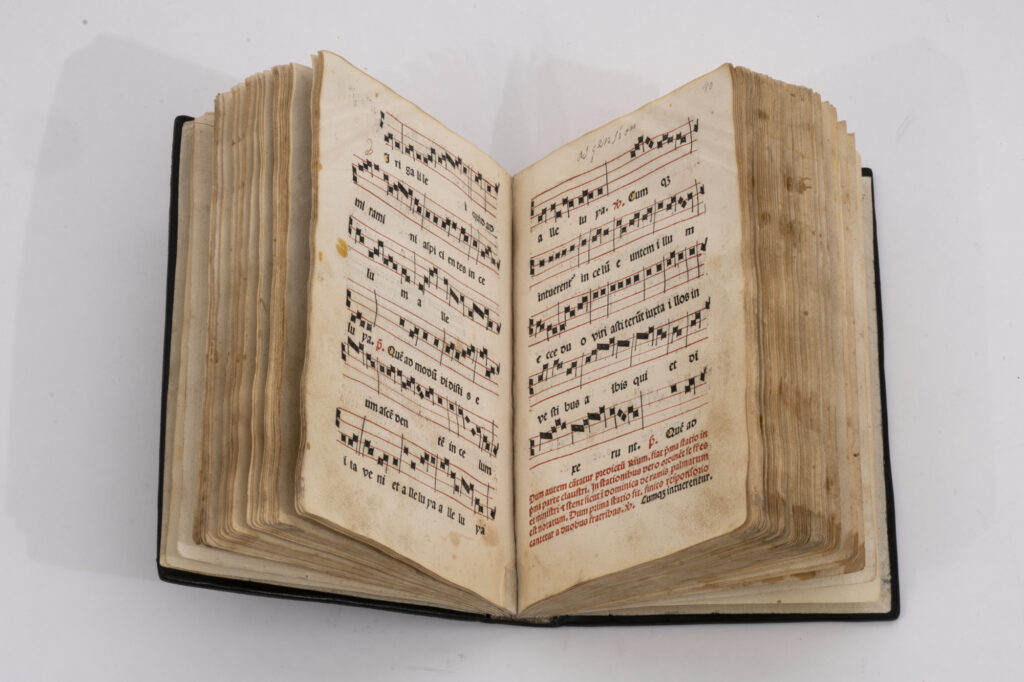 ri ga li le i quid ad
mi rami ni aspi ci en tes in ce
lu m a lle
lu ya. p̃. Quē ad modū vi disti s e
um ascē den tē in ce lum
i ta ve ni et a lle lu ya a lle lu ya
90
a lle lu ya. ꝟ. Cum qȝ
intuerent' in celū e untem i llu m
e cce du o viri asti terūt iuxta i llos in
ve sti bus a lbis qui et di
xe ru nt. p̃. Quē ad
Dum autem cātatur predictū fiat p̄ma statio in
p̄ma parte claustri. In stationibus vero
et ministri sicut i dominica de ramis palmarum
est notatum. Dum prima statio fit. finito responsorio
cantetur a duobus fratribus. ꝟ. Cumqȝ intuerentur.